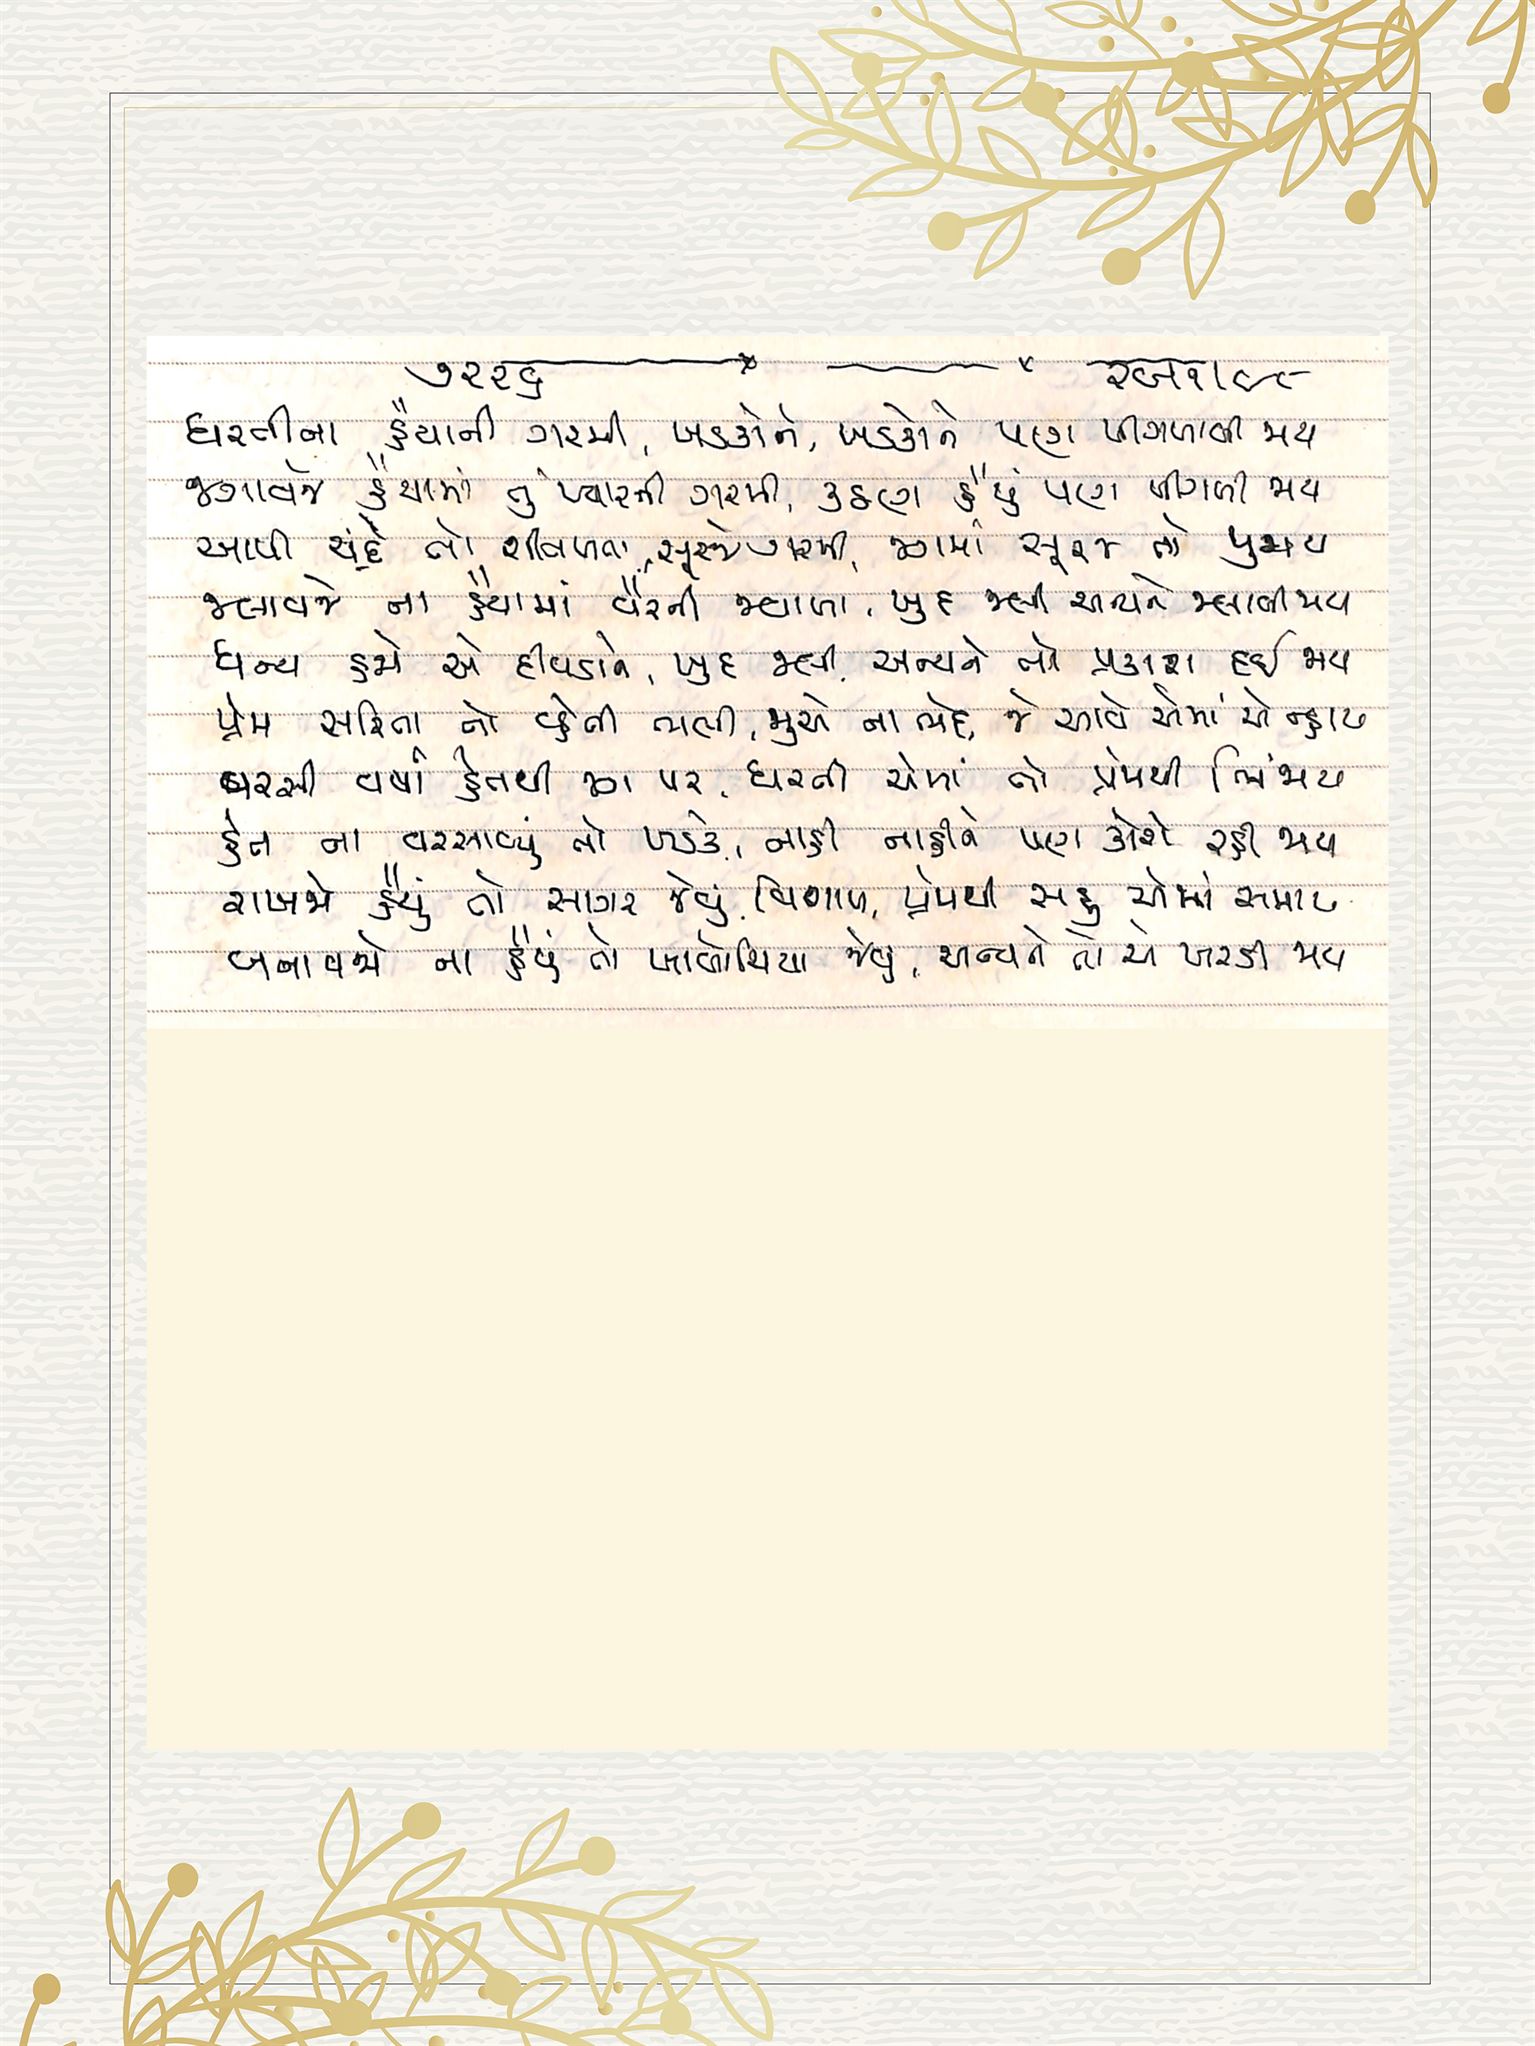 ૭૨૨૬
ધરતીના હૈયાની ગરમી, ખડકોને, ખડકોને પણ પીગળાવી જાય
જગાવજે હૈયામાં તું પ્યારની ગરમી, કઠણ હૈયું પણ પીગળી જાય
આપી ચંદ્રે તો શીતળતા, સૂરજે ગરમી, જગમાં સૂરજ તો પુજાય
જલાવજે ના હૈયામાં વૈરની જ્વાળા, ખુદ જલી અન્યને જલાવી જાય
ધન્ય કહજો એ દીવડાને, ખુદ જલી, અન્યને તો પ્રકાશ દઈ જાય
પ્રેમ સરિતા તો વ્હેતી ભલી, જુએ ના ભેદ, જે આવે એમાં એ ન્હાય
વરસી વર્ષા હેતથી જગ પર, ધરતી એમાં તો પ્રેમથી ભિંજાય
હેત ના વરસાવ્યું તો ખડકે, નાહી નાહીને પણ કોરો રહી જાય
રાખજે હૈયું તો સાગર જેવું વિશાળ, પ્રેમથી સહુ એમાં સમાય
બનાવજો ના હૈયું તો ખાબોચિયા જેવું, અન્યને તો એ ખરડી જાય